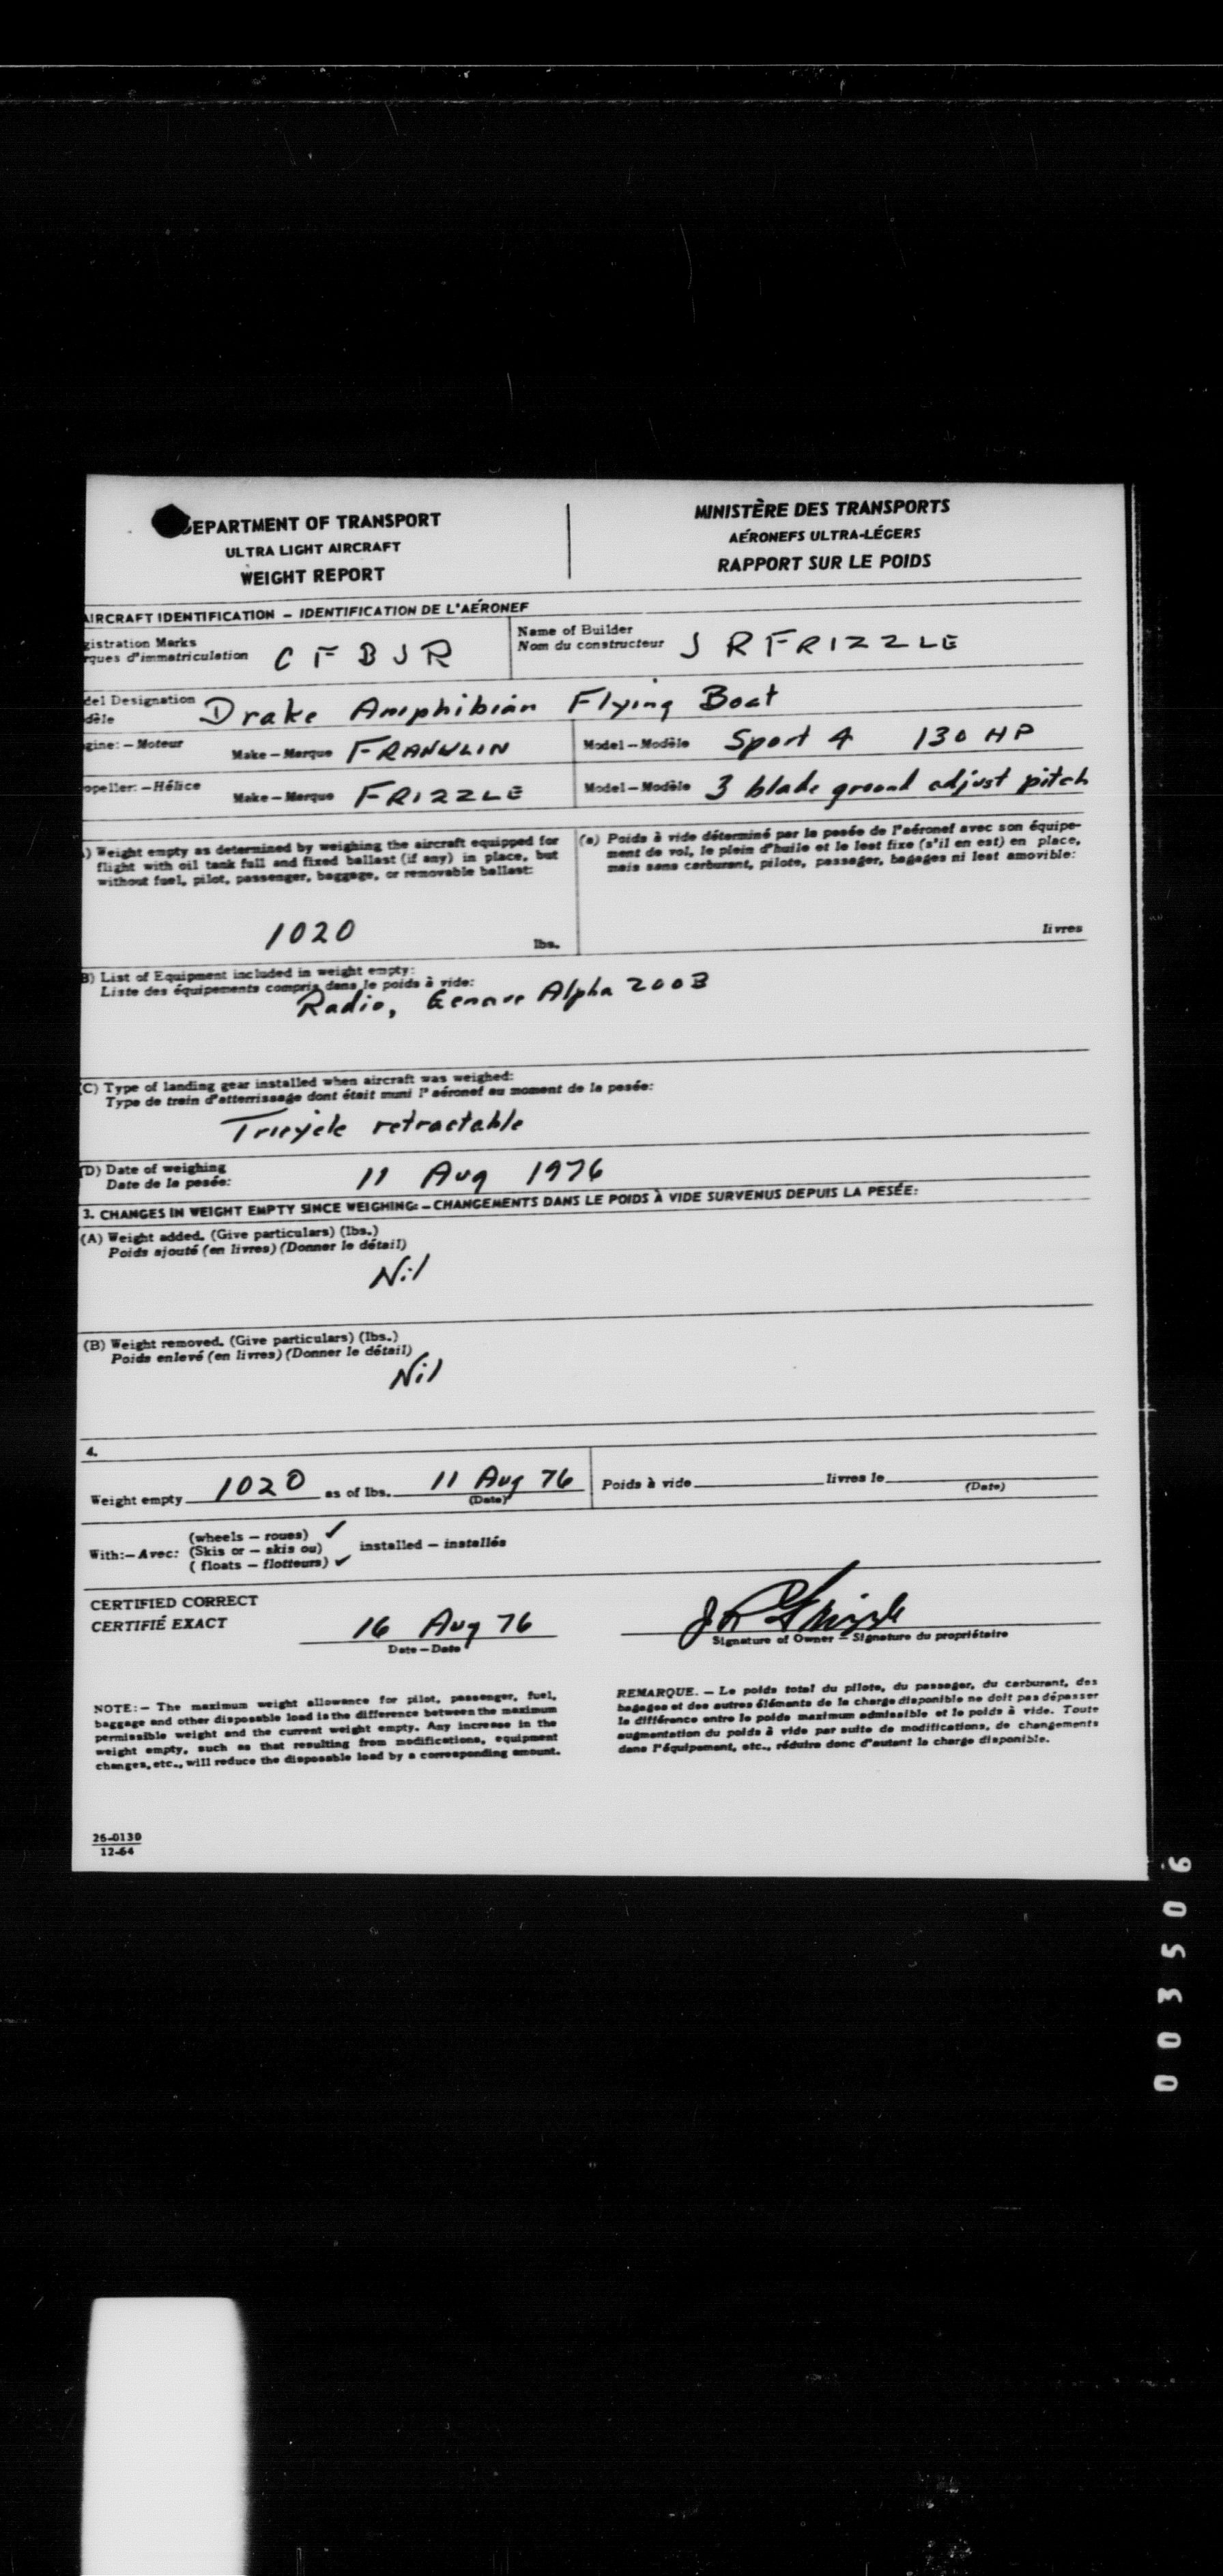 DEPARTMENT OF TRANSPORT
ULTRA LIGHT AIRCRAFT
WEIGHT REPORT
MINISTÈRE DES TRANSPORTS
AÉRONEFS ULTRA-LÉGERS
RAPPORT SUR LE POIDS
AIRCRAFT IDENTIFICATION – IDENTIFICATION DE L'AÉRONEF
gistration Marks
rques d'immatriculation C F B J R
Name of Builder
Nom du constructeur J R FRIZZLE
del Designation
dèle Drake Amphibian Flying Boat
gine: – Moteur Make – Marque FRANKLIN Model – Modèle Sport 4 130 HP
opeller: – Hélice Make – Marque FRIZZLE Model – Modèle 3 blade ground adjust pitch
) Weight empty as determined by weighing the aircraft equipped for
flight with oil tank full and fixed ballast (if any) in place, but
without fuel, pilot, passenger, baggage, or removable ballast:
1020 lbs.
(a) Poids à vide déterminé par la pesée de l'aéronef avec son équipe-
ment de vol, le plein d'huile et le lest fixe (s'il en est) en place,
mais sans carburant, pilote, passager, bagages ni lest amovible:
livres
B) List of Equipment included in weight empty:
Liste des équipements compris dans le poids à vide:
Radio, Genave Alpha 200B
(C) Type of landing gear installed when aircraft was weighed:
Type de train d'atterrissage dont était muni l'aéronef au moment de la pesée:
Tricycle retractable
(D) Date of weighing
Date de la pesée: 11 Aug 1976
3. CHANGES IN WEIGHT EMPTY SINCE WEIGHING: – CHANGEMENTS DANS LE POIDS À VIDE SURVENUS DEPUIS LA PESÉE:
(A) Weight added. (Give particulars) (lbs.)
Poids ajouté (en livres) (Donner le détail)
Nil
(B) Weight removed. (Give particulars) (lbs.)
Poids enlevé (en livres) (Donner le détail)
Nil
4.
Weight empty 1020 as of lbs. 11 Aug 76
(Date)
Poids à vide livres le
(Date)
(wheels – roues) ✓
With:– Avec: (Skis or – skis ou) installed – installés
( floats – flotteurs) ✓
CERTIFIED CORRECT
CERTIFIÉ EXACT
16 Aug 76
Date – Date
J R Frizzle
Signature of Owner – Signature du propriétaire
NOTE:– The maximum weight allowance for pilot, passenger, fuel,
baggage and other disposable load is the difference between the maximum
permissible weight and the current weight empty. Any increase in the
weight empty, such as that resulting from modifications, equipment
changes, etc., will reduce the disposable load by a corresponding amount.
REMARQUE. – Le poids total du pilote, du passager, du carburant, des
bagages et des autres éléments de la charge disponible ne doit pas dépasser
la différence entre le poids maximum admissible et le poids à vide. Toute
augmentation du poids à vide par suite de modifications, de changements
dans l'équipement, etc., réduira donc d'autant la charge disponible.
26-0130
12-64
003506